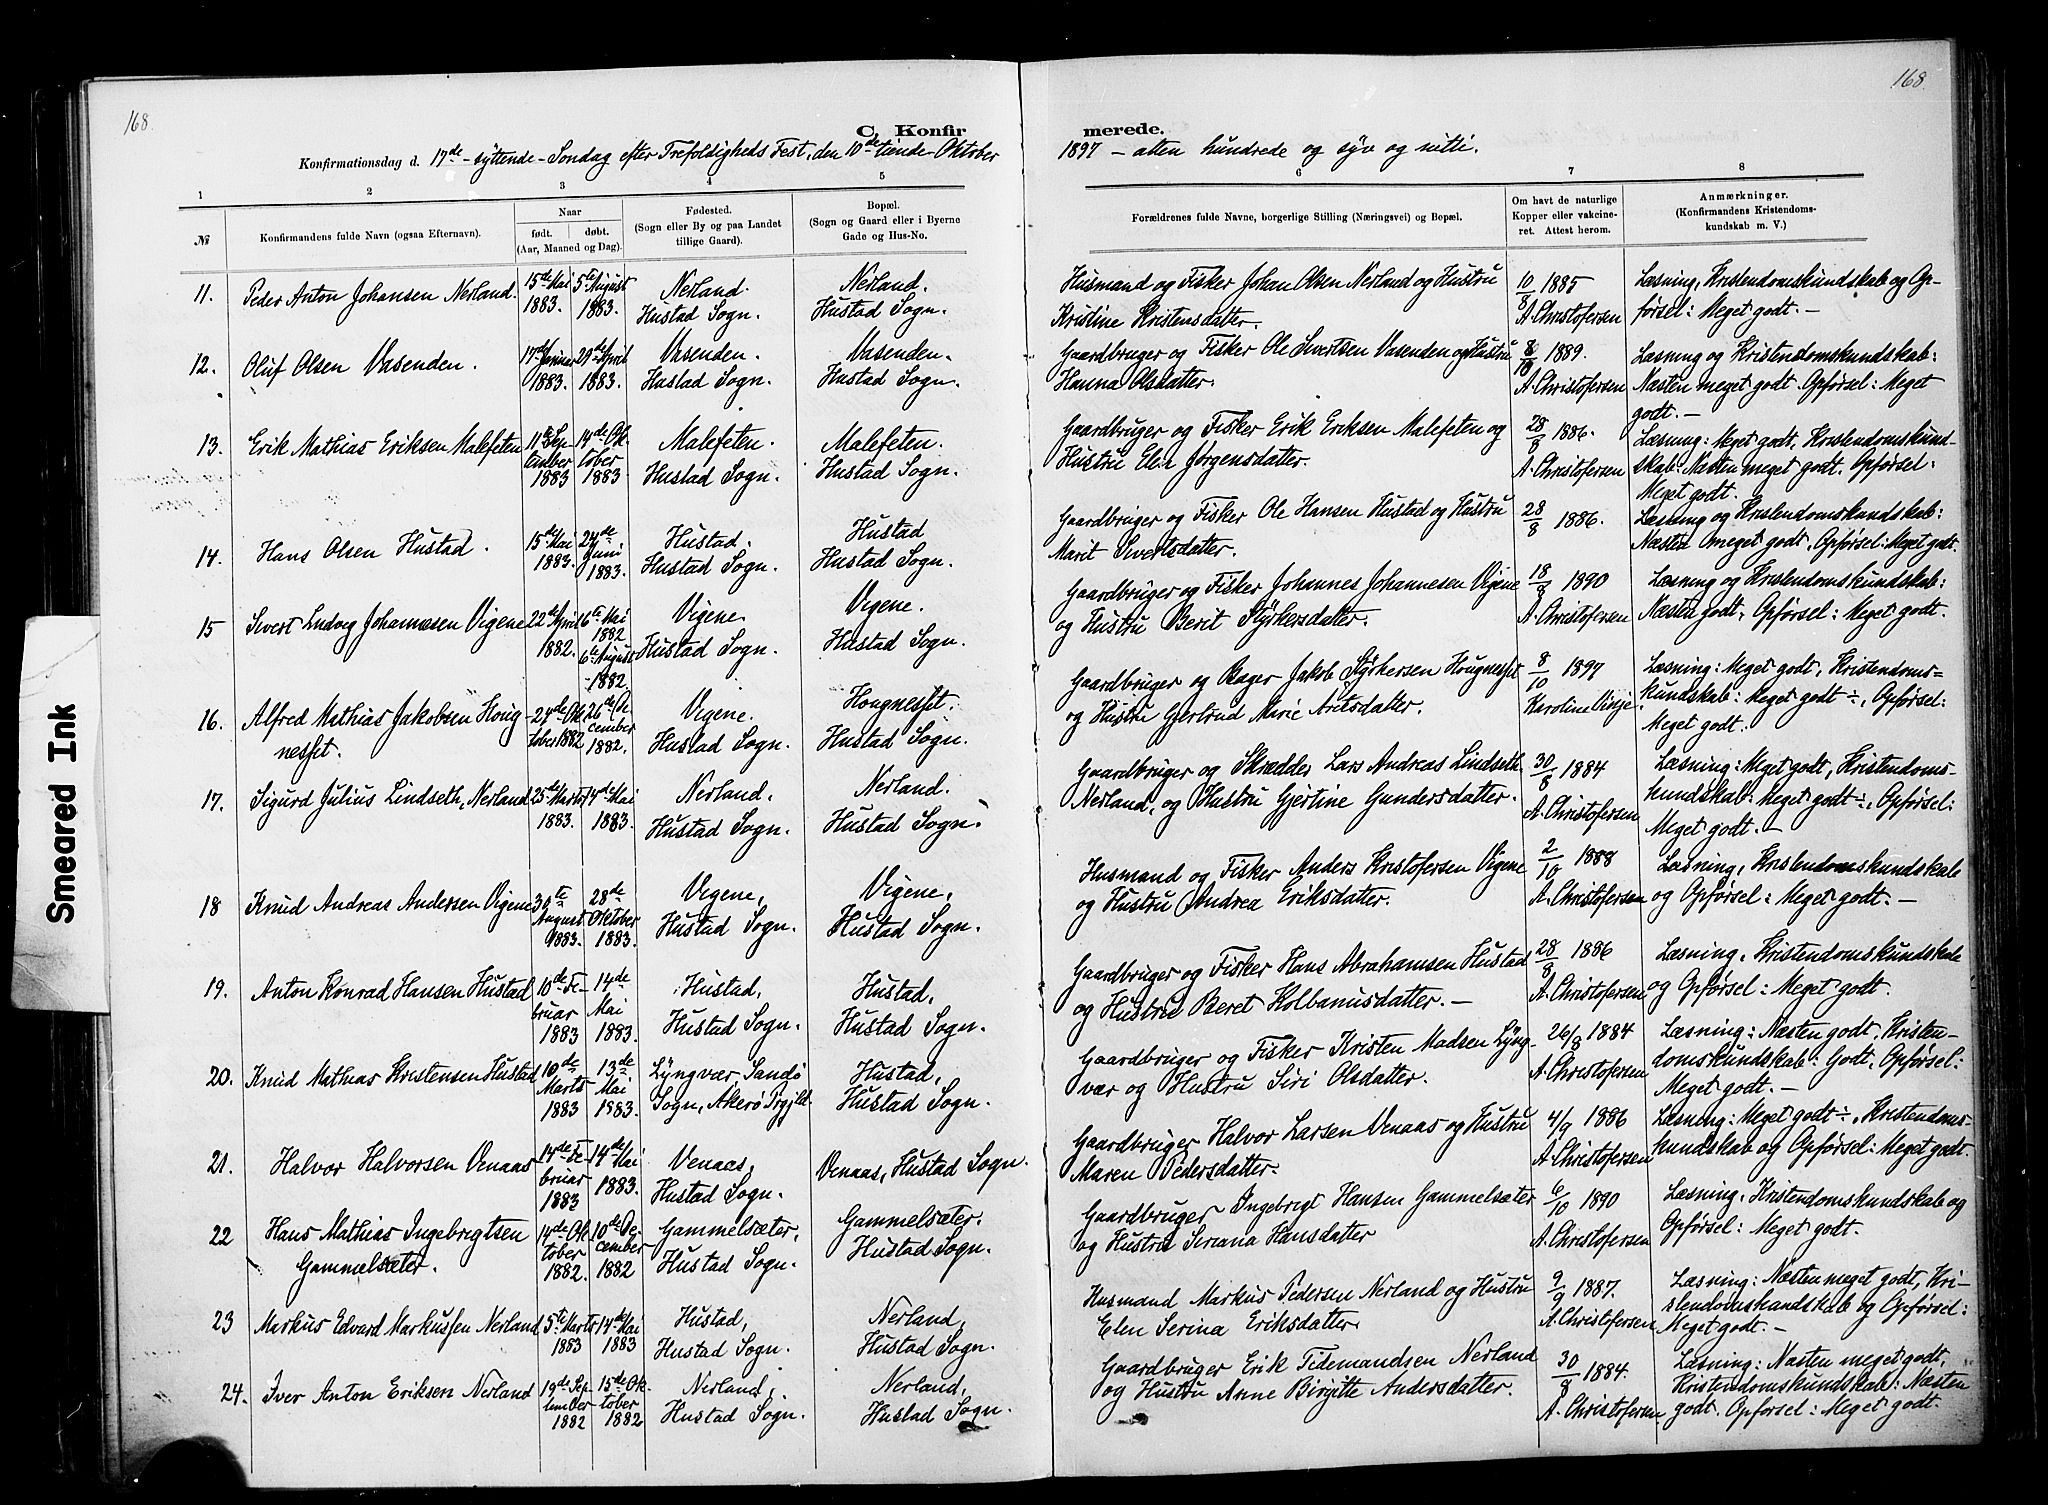 168.
168.
C. Konfirmerede.
Konfirmationsdag d. 17de - syttende - Søndag efter Trefoldigheds Fest, den 10de tiende Oktober 1897 - atten hundrede og syv og nitti.
1 2 3 4 5 6 7 8
№
Konfirmandens fulde Navn (ogsaa Efternavn).
Naar
født. døbt.
(Aar, Maaned og Dag).
Fødested.
(Sogn eller By og paa Landet
tillige Gaard).
Bopæl.
(Sogn og Gaard eller i Byerne
Gade og Hus-No.
Forældrenes fulde Navne, borgerlige Stilling (Næringsvei) og Bopæl.
Om havt de naturlige
Kopper eller vakcine-
ret. Attest herom.
Anmærkninger.
(Konfirmandens Kristendoms-
kundskab m. V.)
11. Peder Anton Johansen Nerland. 15de Mai 1883. 5te August 1883. Nerland. Hustad Sogn. Nerland. Hustad Sogn.
Husmand og Fisker Johan Olsen Nerland og Hustru
Kristine Kristensdatter.
10/8 1885
A. Christofersen
Læsning, Kristendomskundskab og Op-
førsel: Meget godt. -
12. Oluf Olsen Vasenden. 17de Januar 1883. 29de April 1883. Vasenden. Hustad Sogn. Vasenden. Hustad Sogn.
Gaardbruger og Fisker Ole Sivertsen Vasenden og Hustru
Hanna Olsdatter.
8/10 1889.
A. Christofersen
Læsning og Kristendomskundskab:
Næsten meget godt. Opførsel: Meget
godt. -
13. Erik Mathias Eriksen Malefeten 11te September 1883 14de Oktober 1883 Malefeten. Hustad Sogn. Malefeten. Hustad Sogn.
Gaardbruger og Fisker Erik Eriksen Malefeten og
Hustru Elen Jørgensdatter.
28/8 1886.
A. Christofersen
Læsning: Meget godt, Kristendomskund-
skab: Næsten meget godt. Opførsel:
Meget godt.
14. Hans Olsen Hustad. 15de Mai 1883. 24de Juni 1883. Hustad. Hustad Sogn. Hustad Hustad Sogn.
Gaardbruger og Fisker Ole Hansen Hustad og Hustru
Marit Sivertsdatter.
28/8 1886.
Læsning og Kristendomskundskab:
Næsten meget godt, Opførsel: Meget godt.
15 Sivert Ludvig Johannesen Vigene 22de April 1882. 16te Mai 1882 6te August 1882. Vigene. Hustad Sogn. Vigene. Hustad Sogn.
Gaardbruger og Fisker Johannes Johannesen Vigene
og Hustru Berit Styrkersdatter.
18/8 1890
A. Christofersen
Læsning og Kristendomskundskab:
Næsten godt, Opførsel: Meget godt.
16. Alfred Mathias Jakobsen Houg-
nesset. 24de Oktober 1882 26de December 1882. Vigene. Hustad Sogn. Hougnesset. Hustad Sogn.
Gaardbruger og Bager Jakob Styrkersen Hougnesset
og Hustru Gjertrud Marie Aritsdatter.
8/10 1897
Karoline
Læsning: Meget godt, Kristendoms=
kundskab: Meget godt ÷, Opførsel:
Meget godt.
17. Sigurd Julius Lindseth, Nerland 25de Marts 1883. 14de Mai 1883. Nerland. Hustad Sogn. Nerland. Hustad Sogn.
Gaardbruger og Skrædder Lars Andreas Lindseth
Nerland, og Hustru Gjertine Gundersdatter.
30/8 1884
A. Christofersen
Læsning: Meget godt, Kristendoms-
kundskab: Meget godt ÷, Opførsel:
Meget godt. -
18 Knud Andreas Andersen Vigene 30te August 1883. 28de Oktober 1883. Vigene, Hustad Sogn. Vigene, Hustad Sogn.
Husmand og Fisker Anders Kristofersen Vigene
og Hustru Andrea Eriksdatter.
2/10 1888
A. Christofersen
Læsning, Kristendomskundskab
og Opførsel: Meget godt. -
19. Anton Konrad Hansen Hustad 10de Februar 1883 14de Mai 1883. Hustad, Hustad Sogn. Hustad, Hustad Sogn.
Gaardbruger og Fisker Hans Abrahamsen Hustad
og Hustru Beret Kolbanusdatter. -
28/8 1886
A. Christofersen
Læsning, Kristendomskundskab
og Opførsel: Meget godt.
20. Knud Mathias Kristensen Hustad 10de Marts 1883 13de Mai 1883. Lyngvær, Sandø Sogn, Akerø Prgjld Hustad, Hustad Sogn.
Gaardbruger og Fisker Kristen Madsen Lyng-
vær og Hustru Siri Olsdatter.
26/8 1884
A. Christofersen
Læsning: Næsten godt, Kristen-
domskundskab: Godt, Opførsel:
Meget godt. -
21. Halvor Halvorsen Venaas 14de Februar 1883 14de Mai 1883. Venaas, Hustad Sogn. Venaas, Hustad Sogn.
Gaardbruger Halvor Larsen Venaas og Hustru
Maren Pedersdatter.
4/9 1886
A. Christofersen
Læsning: Meget godt ÷, Kristendoms-
kundskab og Opførsel: Meget godt.
22 Hans Mathias Ingebregtsen
Gammelsæter. 14de Oktober 1882. 10de December 1882 Gammelsæter, Hustad Sogn. Gammelsæter. Hustad Sogn.
Gaardbruger Ingebrigt Hansen Gammelsæter
og Hustru Seriana Hansdatter
6/10 1890
A. Christofersen
Læsning, Kristendomskundskab og
Opførsel: Meget godt.
23 Markus Edvard Markussen Nerland 5te Marts 1883 14de Mai 1883 Hustad, Hustad Sogn. Nerland, Hustad Sogn.
Husmand Markus Pedersen Nerland og Hustru
Elen Serina Eriksdatter.
9/9 1887.
A. Christofersen
Læsning: Næsten meget godt, Kri-
stendomskundskab og Opførsel:
Meget godt. -
24. Iver Anton Eriksen Nerland 19de September 1882 15de Oktober 1882 Nerland, Hustad Sogn. Nerland, Hustad Sogn.
Gaardbruger Erik Tidemandsen Nerland
og Hustru Anne Birgitte Andersdatter.
30/8 1884.
A. Christofersen
Læsning: Næsten meget godt,
Kristendomskundskab: Næsten
godt. Opførsel: Meget godt.
Smeared Ink